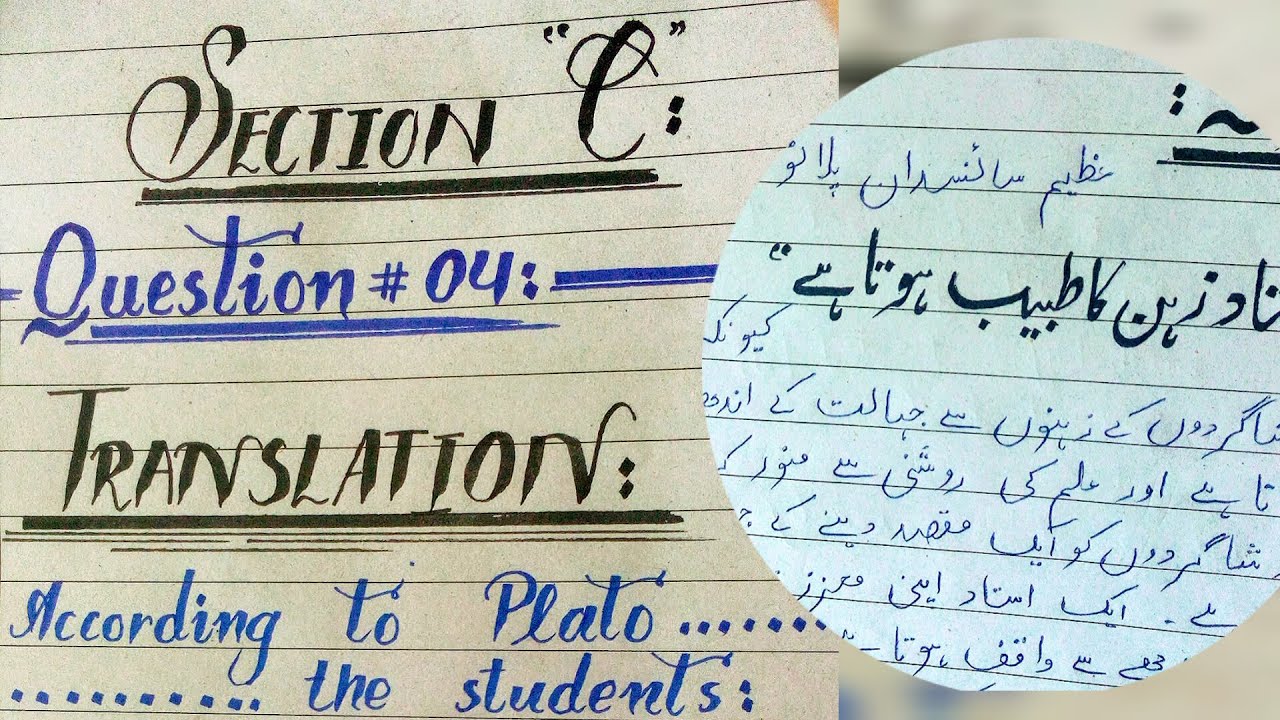 SECTION "C":
Question # 04:
TRANSLATION:
According to Plato ........
........... the students:
عظیم سائنسدان پلاٹو
ذہن کا طبیب ہوتا ہے"
کیونکہ
شاگردوں کے ذہنوں سے جہالت کے
تا ہے اور علم کی روشنی سے منور
شاگردوں کو ایک مقصد دینے کے
ہے۔ ایک استاد اپنی معزز
سے واقف ہوتا